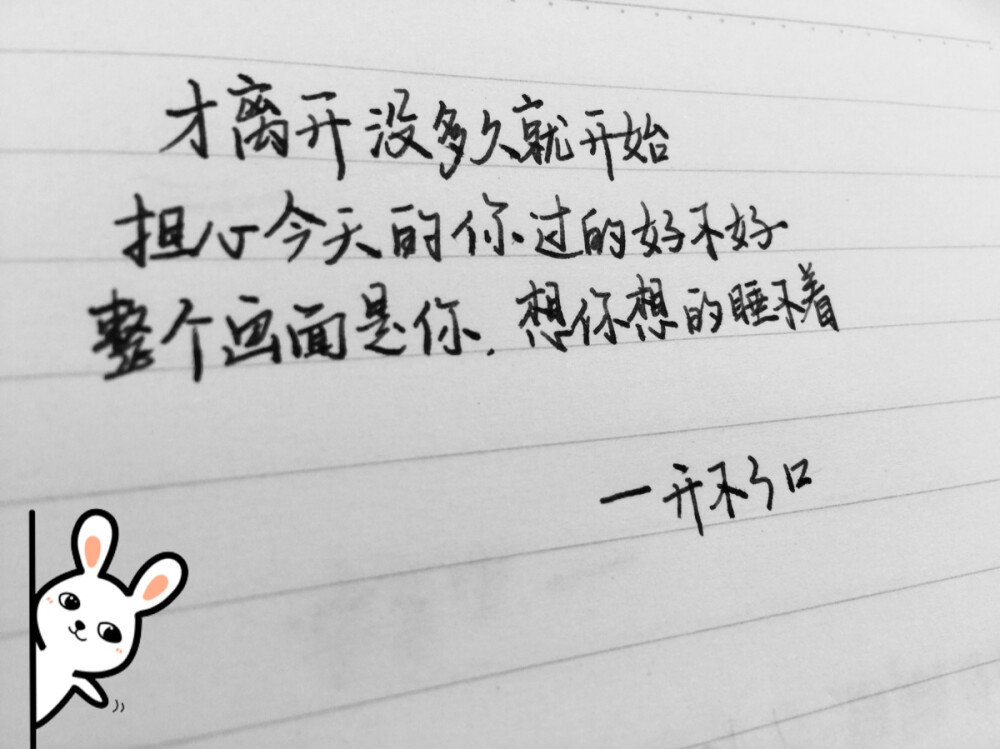 才离开没多久就开始
担心今天的你过的好不好
整个画面是你.想你想的睡不着
一开不了口